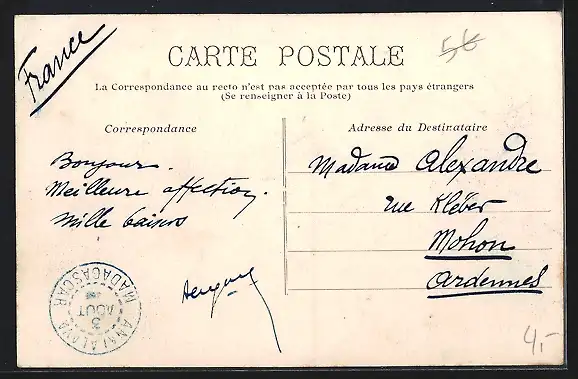 France
56
CARTE POSTALE
La Correspondance au recto n'est pas acceptée par tous les pays étrangers
(Se renseigner à la Poste)
Correspondance
Bonjour.
Meilleure affection.
Mille baisers
Adresse du Destinataire
Madame Alexandre
rue Kléber
Mohon
Ardennes
MADAGASCAR
3
AOUT
ANALALAVA
4,-